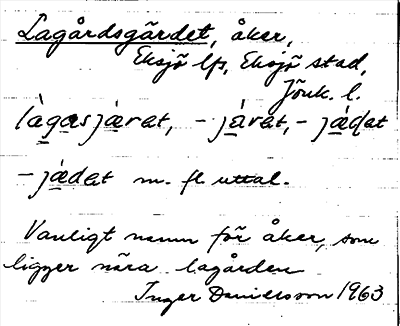 Lagårdsgärdet, åker,
Eksjö lfs, Eksjö stad,
Jönk. l.
làgasjærat, -jærat, -jædat
-jædat m. fl. uttal.
Vanligt namn för åker, som
ligger nära lagården
Inger Danielsson 1963